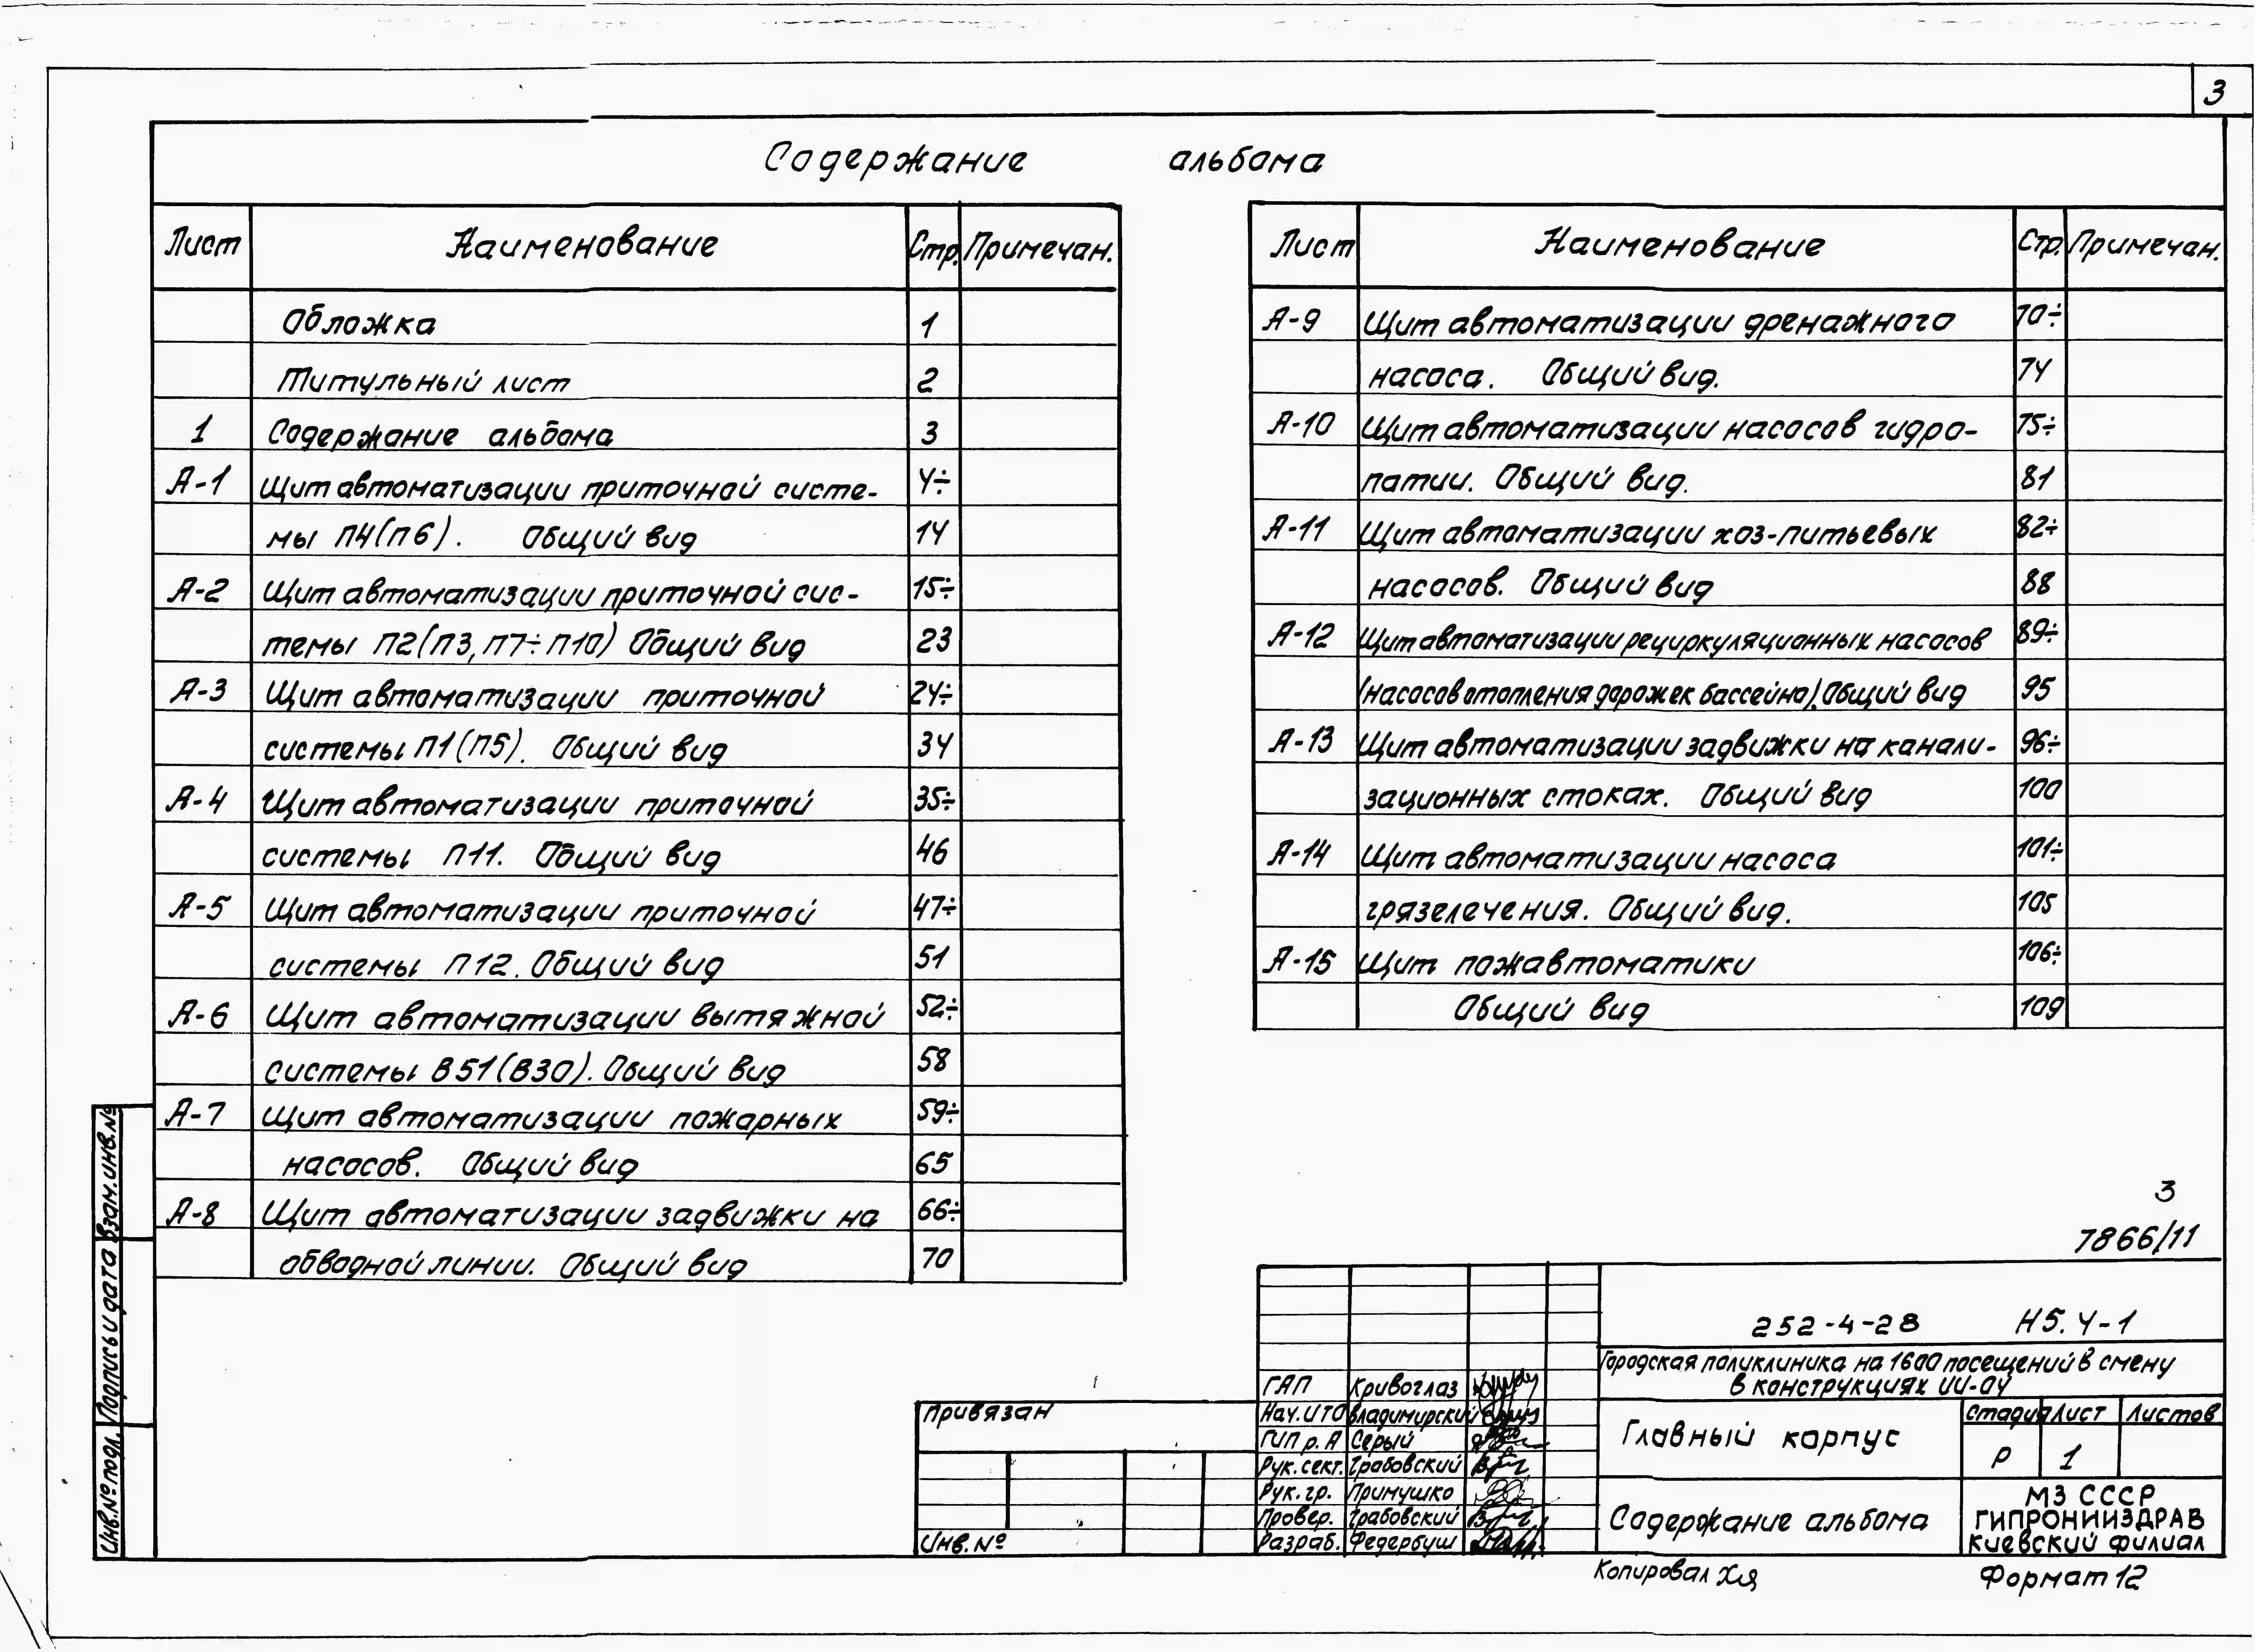 3
Содержание альбома
Лист Наименование Стр. Примечан.
Обложка 1
Титульный лист 2
1 Содержание альбома 3
А-1 Щит автоматизации приточной систе- 4÷
мы П4(П6). Общий вид 14
А-2 Щит автоматизации приточной сис- 15÷
темы П2(П3, П7÷П10) Общий вид 23
А-3 Щит автоматизации приточной 24÷
системы П1(П5). Общий вид 34
А-4 Щит автоматизации приточной 35÷
системы П11. Общий вид 46
А-5 Щит автоматизации приточной 47÷
системы П12. Общий вид 51
А-6 Щит автоматизации вытяжной 52÷
системы В51(В30). Общий вид 58
А-7 Щит автоматизации пожарных 59÷
насосов. Общий вид 65
А-8 Щит автоматизации задвижки на 66÷
обводной линии. Общий вид 70
Лист Наименование Стр. Примечан.
А-9 Щит автоматизации дренажного 70÷
насоса. Общий вид. 74
А-10 Щит автоматизации насосов гидро- 75÷
патии. Общий вид. 81
А-11 Щит автоматизации хоз-питьевых 82÷
насосов. Общий вид 88
А-12 Щит автоматизации рециркуляционных насосов 89÷
(насосов отопления дорожек бассейна). Общий вид 95
А-13 Щит автоматизации задвижки на канали- 96÷
зационных стоках. Общий вид 100
А-14 Щит автоматизации насоса 101÷
грязелечения. Общий вид. 105
А-15 Щит пожавтоматики 106÷
Общий вид 109
3
7866/11
252-4-28 Н5.4-1
Городская поликлиника на 1600 посещений в смену
в конструкциях ИИ-04
Главный корпус
Стадия Лист Листов
Р 1
Содержание альбома
МЗ СССР
ГИПРОНИИЗДРАВ
Киевский филиал
ГАП Кривоглаз
Нач. ИТО Владимирский
ГИП р. А Серый
Рук. сект. Грабовский
Рук. гр. Примушко
Провер. Грабовский
Разраб. Федербуш
Привязан
Инв. №
Взам. инв. №
Подпись и дата
Инв. № подл.
Копировал
Формат 12